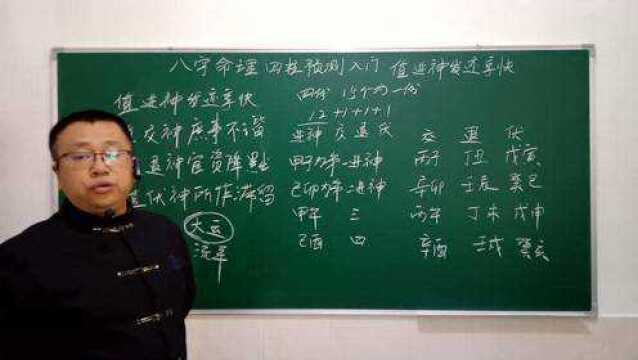 八字命理 四柱预测入门 值进神发迹享快
值进神发迹享快
交神庶事不谐
退神官资降黜
伏神所作滞留
大运
流年
四份 15个为一份
12+1+1+1
进神 交 退 伏
甲子为第一进神
己卯为第二进神
甲午 三
己酉 四
交 退 伏
丙子 丁丑 戊寅
辛卯 壬辰 癸巳
丙午 丁未 戊申
辛酉 壬戌 癸亥